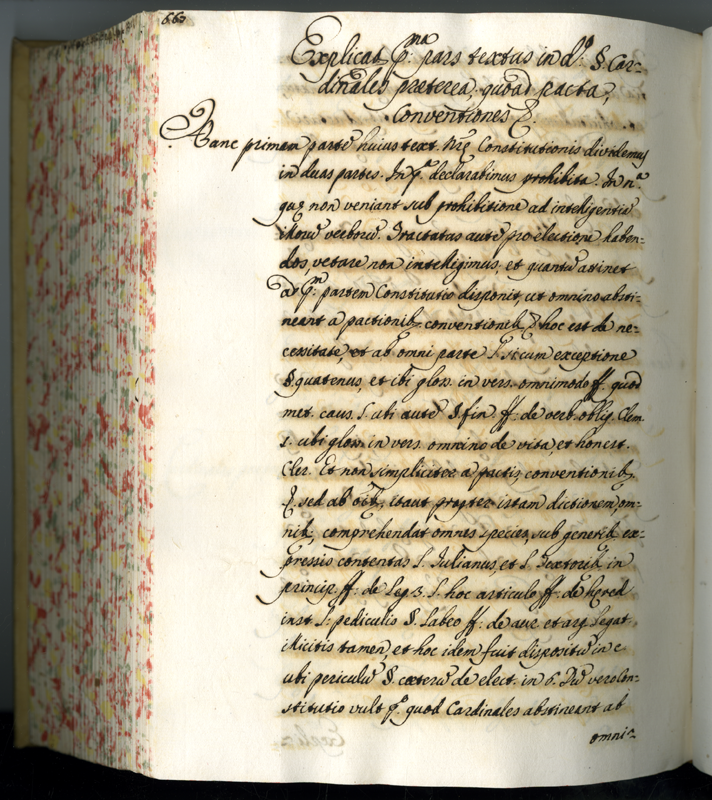 667
Explicat p.ª pars textus in d.º §. Car-
dinales preterea, quoad pacta,
Conventiones &.
Hanc primam parte huius text. nrẽ Constitutionis dividemus
in duas partes. In p.ª declarabimus prohibita. In n.ª
quẹ non veniant sub prohibitione ad intelligentiã
illorũ verborũ. Tractatus autẽ pro electione haben-
dos, vetare non intelligimus, et quantũ atinet
ad p.m partem Constitutio disponit, ut omnino absti-
neant a pactionib, conventionib & hoc est de ne-
cessitate, et ab omni parte l. secum exceptione
§ quatenus, et ibi glos. in vers. omnimodo ff. quod
met. caus. l. ubi autẽ §. fin. ff. de verb. oblig. Clem.
1. ubi glos. in vers. omnino de vita, et honest.
Cler. Et non simpliciter a pactis, conventionib,
&. sed ab oib, itaut propter istam dictionem om-
nib, comprehendat omnes species, sub generib ex-
pressis contentas l. Iulianus, et l. Textorib in
princip. ff. de leg. 3. l. hoc articulo ff. de hẹred.
inst. l. pediculis §. Labeo ff. de aur. et arg. legat.
illicitis tamen, et hoc idem fuit dispositũ in c.
ubi periculũ §. cẹterũ de elect. in 6. Dũ vero Con-
stitutio vult p.º quod Cardinales abstineant ab
omni-